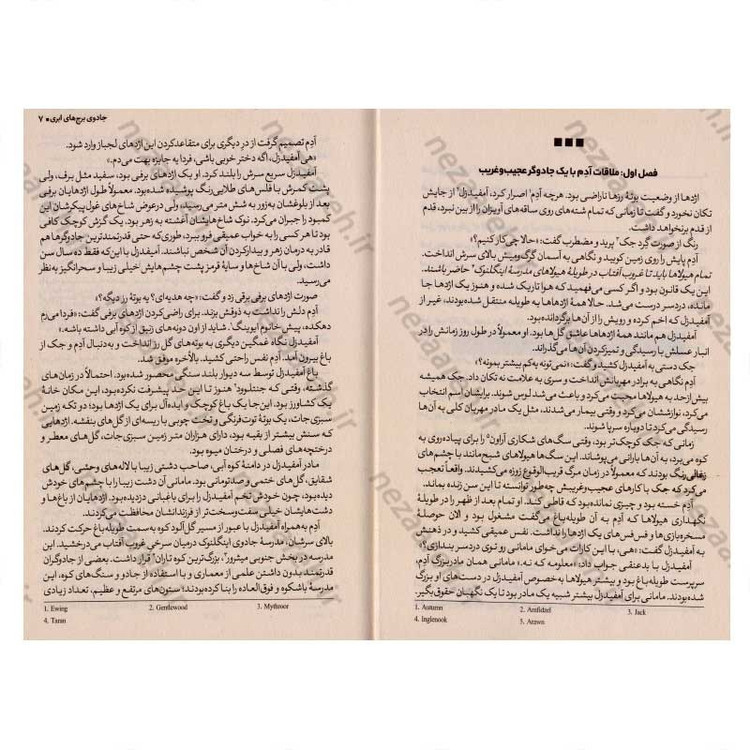 ■■■
فصل اول: ملاقات آدِم با یک جادوگر عجیب‌وغریب
اژدها از وضعیت بوتهٔ رزها ناراضی بود. هرچه آدِم اصرار کرد، آمفیدزل از جایش
تکان نخورد و گفت تا زمانی که تمام شته‌های روی ساقه‌های آویزان را از بین نبرد، قدم
از قدم برنخواهد داشت.
رنگ از صورت گِرد جک پرید و مضطرب گفت: «حالا چی‌کار کنیم؟»
آدِم پایش را روی زمین کوبید و نگاهی به آسمان گرگ‌ومیش بالای سرش انداخت.
تمام هیولاها باید تا غروب آفتاب در طویلهٔ هیولاهای مدرسهٔ اینگلنوک حاضر باشند.
این یک قانون بود و اگر کسی می‌فهمید که هوا تاریک شده و هنوز یک اژدها جا
مانده، دردسر درست می‌شد. حالا همهٔ اژدهاها به طویله منتقل شده‌بودند، غیر از
آمفیدزل که اخم کرده و رویش را از آن‌ها برگردانده‌بود.
آمفیدزل هم مانند همهٔ اژدهاها عاشق گل‌ها بود. او معمولاً در طول روز زمانش را در
انبار عسلش با رسیدگی و تمیز کردن آن‌ها می‌گذراند.
جک دستی به آمفیدزل کشید و گفت: «نمی‌تونه یه‌کم بیشتر بمونه؟»
آدِم نگاهی به برادر مهربانش انداخت و سری به علامت نه تکان داد. جک همیشه
بیش‌ازحد به هیولاها محبت می‌کرد و باعث می‌شد لوس شوند. برایشان اسم انتخاب
می‌کرد، نوازششان می‌کرد و وقتی بیمار می‌شدند، مثل یک مادر مهربان کلی به آن‌ها
رسیدگی می‌کرد تا دوباره سرپا شوند.
زمانی که جک کوچک‌تر بود، وقتی سگ‌های شکاری آراون را برای پیاده‌روی به
کوه می‌برد، به آن‌ها بارانی می‌پوشاند. این سگ‌ها هیولاهای شبح‌مانند با چشم‌های
زغالی‌رنگ بودند که معمولاً در زمان مرگ قریب‌الوقوع زوزه می‌کشیدند. واقعاً تعجب
می‌کرد که جک با کارهای عجیب‌وغریبش چه‌طور توانسته تا این سن زنده بماند.
آدِم خسته بود و چیزی نمانده‌بود که قاطی کند. او تمام بعد از ظهر را در طویلهٔ
نگهداری هیولاها که آدِم به آن طویله‌باغ می‌گفت مشغول بود و الان حوصلهٔ
مسخره‌بازی‌ها و قِرس‌قِرس‌های یک اژدها را نداشت. نفس عمیقی کشید و در ذهنش
به آمفیدزل گفت: «هی، با این کارات می‌خوای مامانی رو توی دردسر بندازی؟»
آمفیدزل با بدعنقی جواب داد: «معلومه که نه.» مامانی همان مادربزرگ آدِم،
سرپرست طویله‌باغ بود و بیشتر هیولاها به‌خصوص آمفیدزل در دست‌های او بزرگ
شده‌بودند. مامانی برای آمفیدزل بیشتر شبیه یک مادر بود تا یک نگهبان حقوق‌بگیر.
1. Autumn 2. Amfidzel 3. Jack
4. Inglenook 5. Arawn
جادوی برج‌های ابری ■ ۷
آدِم تصمیم گرفت از درِ دیگری برای متقاعدکردن این اژدهای لجباز وارد شود.
«هی آمفیدزل، اگه دختر خوبی باشی، فردا یه جایزه بهت می‌دم.»
آمفیدزل سریع سرش را بلند کرد. او یک اژدهای برفی بود، سفید مثل برف، ولی
پشت کمرش با فلس‌های طلایی‌رنگ پوشیده شده‌بود. معمولاً طول اژدهایان برفی
بعد از بلوغشان به‌زور به شش متر می‌رسید، ولی درعوض شاخ‌های غول‌پیکرشان این
کمبود را جبران می‌کرد. نوک شاخ‌هایشان آغشته به زهر بود. یک گزش کوچک کافی
بود تا هر کسی را به خواب عمیقی فرو ببرد، طوری‌که حتی قدرتمندترین جادوگرها هم
قادر به درمان زهر و بیدارکردن آن شخص نباشند. آمفیدزل با این‌که فقط ده سال سن
داشت، ولی با آن شاخ‌ها و سایهٔ قرمز پشت چشم‌هایش خیلی زیبا و سحرانگیز به نظر
می‌رسید.
صورت اژدهای برفی برقی زد و گفت: «چه هدیه‌ای؟ یه بوتهٔ رز دیگه؟»
آدِم دلش را نداشت به ذوقش بزند. برای راضی‌کردن اژدهای برفی گفت: «فردا می‌رم
دهکده، پیش خانوم ایوینگ. شاید از اون دونه‌های زنبق از کوه آبی داشته باشه.»
آمفیدزل نگاه غمگین دیگری به بوته‌های گل رز انداخت و به‌دنبال آدِم و جک از
باغ بیرون آمد. آدِم نفس راحتی کشید. بالاخره موفق شد.
باغ آمفیدزل توسط سه دیوار بلند سنگی محصور شده‌بود. احتمالاً در زمان‌های
گذشته، وقتی که جنتلوود هنوز تا این حد پیشرفت نکرده‌بود، این مکان خانهٔ
یک کشاورز بود. این‌جا یک باغ کوچک، و ایده‌آل برای یک اژدها بود؛ دو تکه زمین
سبزی‌جات، یک بوتهٔ توت‌فرنگی و تخت چوبی با ریسه‌ای از گل‌های بنفشه. اژدهایی
که سنش بیشتر از بقیه بود، دارای هزاران متر زمین سبزی‌جات، گل‌های معطر و
درختچه‌های فصلی و درختان میوه بود.
مادر آمفیدزل در دامنهٔ کوه آبی، صاحب دشتی زیبا با لاله‌های وحشی، گل‌های
شقایق، گل‌های ختمی و صدتومانی بود. مامانی آن دشت زیبا را با چشم‌های خودش
دیده‌بود، چون خودش تخم آمفیدزل را برای باغبانی دزدیده‌بود. اژدهایان از باغ‌ها و
دشت‌هایشان خیلی سفت‌وسخت‌تر از فرزندانشان محافظت می‌کردند.
آدِم به‌همراه آمفیدزل با عبور از مسیر گل‌آلود کوه به‌سمت طویله‌باغ حرکت کردند.
بالای سرشان، مدرسهٔ جادوی اینگلنوک درمیان سرخیِ غروب آفتاب می‌درخشید. این
مدرسه در بخش جنوبی میثرور، بزرگ‌ترین کوه تاران قرار داشت. بعضی از جادوگران
قدرتمند بدون داشتن علمی از معماری و با استفاده از جادو و سنگ‌های کوه، این
مدرسهٔ باشکوه و فوق‌العاده را بنا کرده‌بودند؛ ستون‌های مرتفع و عظیم، تعداد زیادی
1. Ewing 2. Gentlewood 3. Mythroor
4. Taran
nezaareh.ir